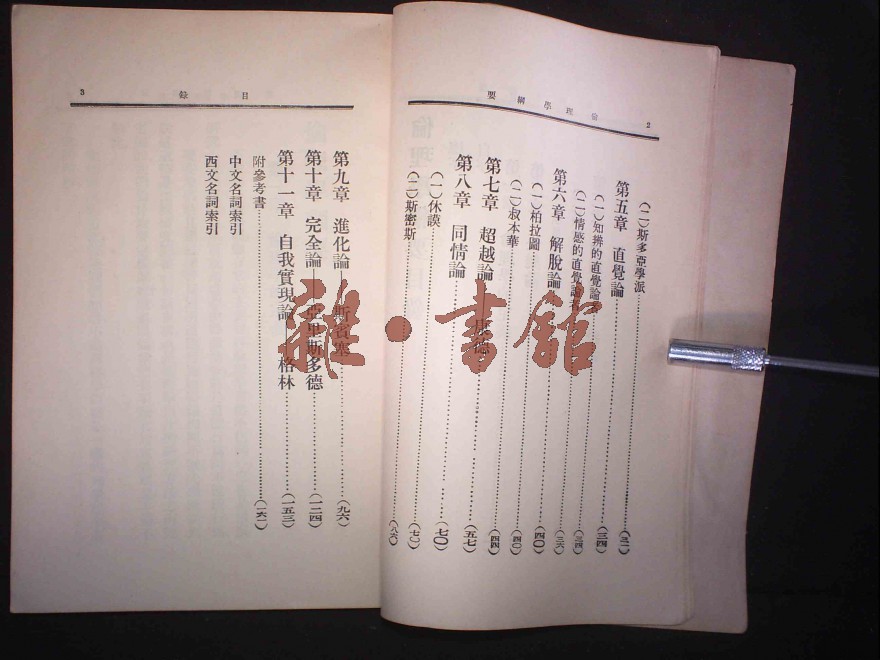 倫理學綱要
2
(二)斯多亞學派(三一)
第五章 直覺論(三四)
(一)知辨的直覺論(三四)
(二)情感的直覺論(三六)
第六章 解脫論(四〇)
(一)柏拉圖(四〇)
(二)叔本華(四四)
第七章 超越論——康德(五七)
第八章 同情論(七〇)
(一)休謨(七〇)
(二)斯密斯(八六)
目錄
3
第九章 進化論——斯賓塞(九六)
第十章 完全論——亞里斯多德(一二四)
第十一章 自我實現論——格林(一五三)
附參考書(一六一)
中文名詞索引
西文名詞索引
雜·書館